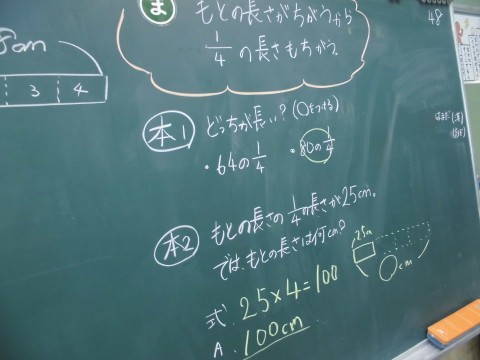 ま もとの長さがちがうから
1/4 の長さもちがう。
3 4
cm
48
本1 どっちが長い?(○をつける)
・64の1/4 ・80の1/4
本2 もとの長さの1/4の長さが25cm。
では、もとの長さは何cm?
25cm
○cm
式 25×4=100
A. 100cm